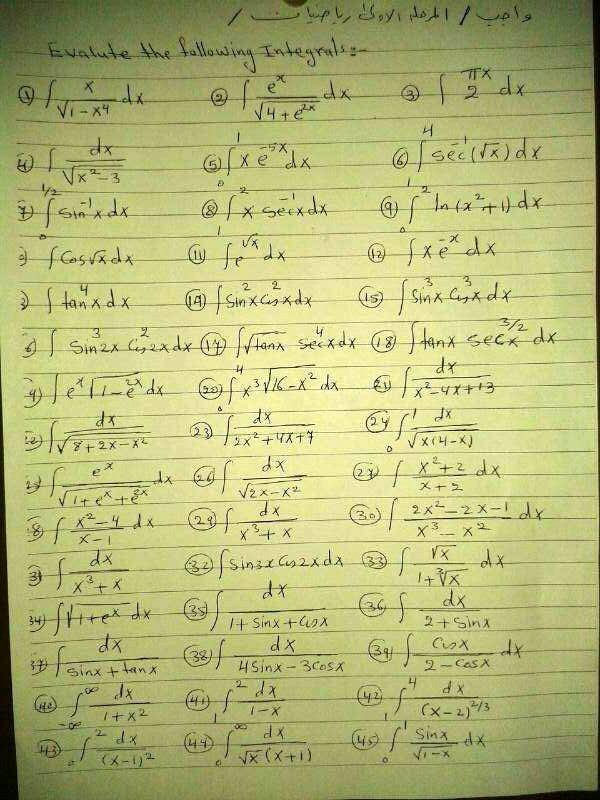 واجب / المرحلة الاولى رياضيات /
Evalute the following Integrals:-
① ∫ x/√(1-x⁴) dx ② ∫ eˣ/√(4+e²ˣ) dx ③ ∫ 2^(πx) dx
4) ∫ dx/√(x²-3) ⑤ ∫₀¹ x e⁻⁵ˣ dx ⑥ ∫⁴ sec⁻¹(√x) dx
7) ∫₀^(1/2) sin⁻¹x dx ⑧ ∫² x sec⁻¹x dx ⑨ ∫₀¹ ln(x²+1) dx
∫ Cos√x dx ⑪ ∫₀¹ e^√x dx ⑫ ∫ x e⁻ˣ dx
3) ∫ tan⁴x dx ⑭ ∫ Sin²x Cos²x dx ⑮ ∫ Sin³x Cos³x dx
6) ∫ Sin³2x Cos²2x dx ⑰ ∫ √tanx sec⁴x dx ⑱ ∫ tanx sec^(3/2)x dx
9) ∫ eˣ √(1-e²ˣ) dx ⑳ ∫₀⁴ x³√(16-x²) dx 21 ∫ dx/(x²-4x+13)
22 ∫ dx/√(8+2x-x²) 23 ∫ dx/(2x²+4x+7) 24 ∫₀¹ dx/√(x(4-x))
25 ∫ eˣ/√(1+eˣ+e²ˣ) dx 26 ∫ dx/√(2x-x²) 27 ∫ (x²+2)/(x+2) dx
8) ∫ (x²-4)/(x-1) dx 29 ∫ dx/(x³+x) 30 ∫ (2x²-2x-1)/(x³-x²) dx
31 ∫ dx/(x³+x) 32 ∫ Sin3x Cos2x dx 33 ∫ √x/(1+∛x) dx
34 ∫ √(1+eˣ) dx 35 ∫ dx/(1+sinx+cosx) 36 ∫ dx/(2+sinx)
37 ∫ dx/(sinx+tanx) 38 ∫ dx/(4sinx-3cosx) 39 ∫ Cosx/(2-cosx) dx
40 ∫₋∞^∞ dx/(1+x²) 41 ∫₁² dx/(1-x) 42 ∫₁⁴ dx/(x-2)^(2/3)
43 ∫₀² dx/(x-1)² 44 ∫₀^∞ dx/(√x(x+1)) 45 ∫₀¹ Sinx/√(1-x) dx